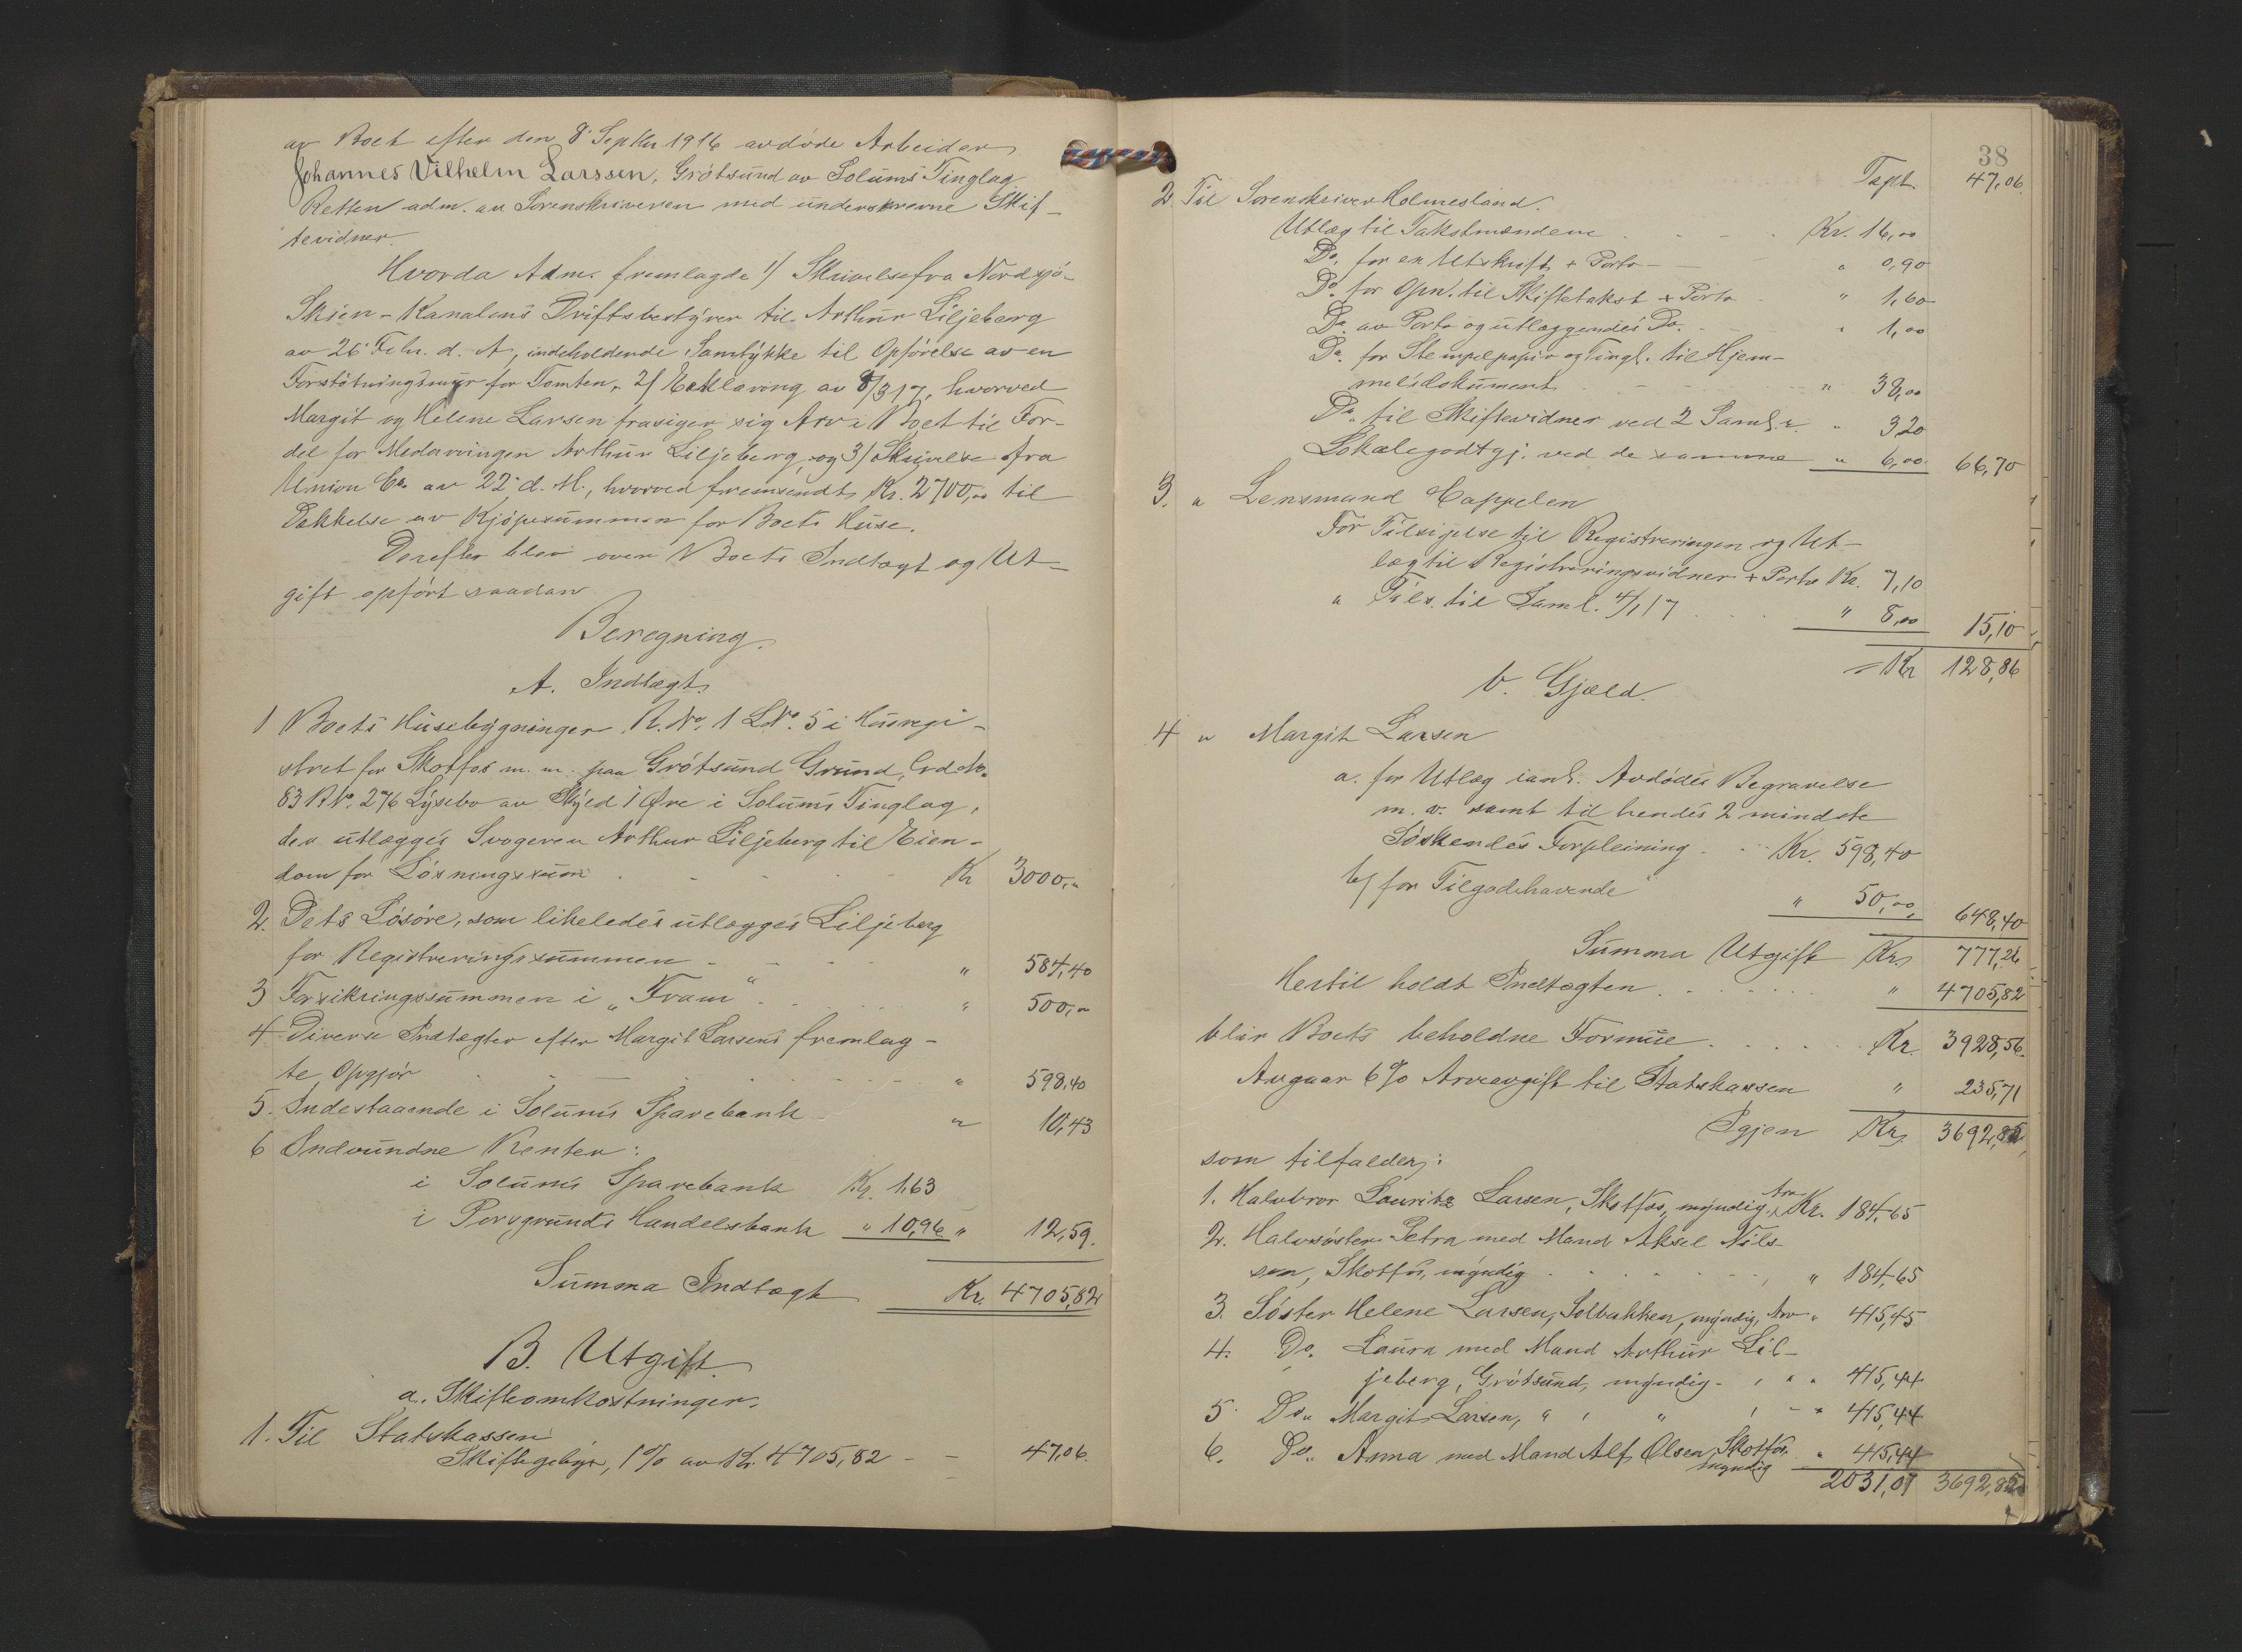 av Boet efter den 8' Septbr 1916 avdøde Arbeider
Johannes Vilhelm Larssen, Grøtsund av Solums Tinglag
Retten adm. av Sorenskriveren med underskrevne Skif-
tevidner.
Hvorda Adm. fremlagde 1/ Skrivelse fra Nordsjø-
Skien-Kanalens Driftsbestyrer til Arthur Liljeberg
av 26' Febr. d. A, indeholdende Samtykke til Opførelse av en
Forstøtningsmur for Tomten, 2/ Erklæring av 8/3 17, hvorved
Margit og Helene Larsen frasiger sig Arv i Boet til For-
del for Medarvingen Arthur Liljeberg og 3/ Skrivelse fra
Union Co. av 22' d. M., hvorved fremsendt Kr. 2700,00 til
Dækkelse av Kjøpesummen for Boets Huse.
Derefter blev over Boets Indtægt og Ut-
gift opført saadan
Beregning.
A. Indtægt.
1 Boets Husebygninger, R.No. 1 LNo. 5 i Husregi-
stret for Skotfos m. m. paa Grøtsund Grund, Grdsno.
83 BNo. 276 Lysebo av Skyld 1 Øre i Solums Tinglag,
der utlægges Svogeren Arthur Liljeberg til Eien-
dom for Løsningssum . . . . Kr 3000,"
2. Dets Løsøre, som likeledes utlægges Liljeberg
for Registreringssummen - - - - " 584,40
3 Forsikringssummen i „Fram“ . . . " 500,"
4 Diverse Indtægter efter Margit Larsens fremlag-
te Opgjør . . . . " 598,40
5. Indestaaende i Solums Sparebank " 10,43
6 Indvundne Renter:
i Solums Sparebank Kr. 1,63
i Porsgrunds Handelsbank " 10,96 " 12,59.
Summa Indtægt Kr. 4705,82
B. Utgift
a. Skifteomkostninger.
1. Til Statskassen
Skiftegebyr, 1% av Kr. 4705,82 - - 47,06.
38
Tapt. 47,06
2 Til Sorenskriver Holmesland.
Utlæg til Takstmændene . - - . Kr. 16,00
Do. for en Utskrift + Porto - - " 0,90
Do. for Opn. til Skiftetakst + Porto " 1,60
Do. av Porto og utlæggendes Do. - " 1,00
Do. for Stempelpapir og Tingl. til Hjem-
melsdokument . - - - - " 38,00
Do. til Skiftevidner ved 2 Saml.r. " 3,20
Lokalegodtgj. ved de samme " 6,00 66,70
3. " Lensmand Cappelen
For Tilsigelse til Registreringen og Ut-
læg til Registreringsvidner + Porto Kr. 7,10
" Tils. til Saml. 4/1 17 . . . " 8,00 15,10
= Kr 128,86
b. Gjæld.
4 " Margit Larsen
a. for Utlæg ianl. Avdødes Begravelse
m. v. samt til hendes 2 mindste
Søskendes Forpleining - - Kr. 598,40
b/ for Tilgodehavende " 50,00, 648,40
Summa Utgift Kr. 777,26
Hertil holdt Indtægten . . . . " 4705,82
blir Boets beholdne Formue . . . . Kr. 3928,56.
Avgaar 6% Arveavgift til Statskassen " 235,71
Igjen Kr. 3692,85
som tilfalder:
1. Halvbror Lauritz Larsen, Skotfos, myndig, Arv Kr. 184,65
2. Halvsøster Petra med Mand Aksel Nils-
sen, Skotfos, myndig . . . . , " 184,65
3. Søster Helene Larsen, Solbakken, myndig, Arv " 415,45
4. Do. Laura med Mand Arthur Lil-
jeberg, Grøtsund, myndig - , " " 415,44
5. Do. Margit Larsen, " , " , - " 415,44
6. Do. Anna med Mand Alf Olsen, Skotfos, " 415,44
myndig
2031,07 3692,85